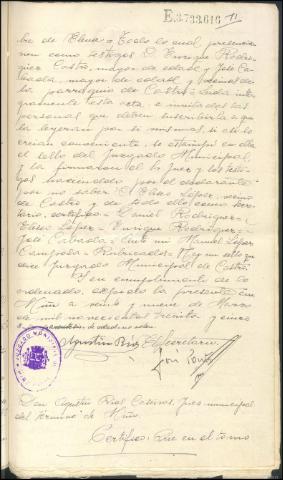 E.3.733.616 11
bre de Elena = Todo lo cual, presencia
ron como testigos D. Enrique Rodrí
guez Castro, mayor de edad, y José Ca
bada, mayor de edad, y vecinos de
la parroquia de Castro = Leída ínte
gramente esta acta, e invitadas las
personas que deben suscribirla a que
la leyeran por si mismas, si así lo
creían conveniente, se estampó en ella
el sello del Juzgado Municipal,
y la firmaron el Sr Juez y los testi
gos, haciendolo por el declarante
por no saber, Eliseo López, vecino
de Castro y de todo ello como Secre
tario, certifico = Daniel Rodríguez =
Eliseo López = Enrique Rodríguez =
José Cabada = Ante mí Manuel López
Rubricados = Hay un sello que
dice "Juzgado Municipal de Castro"
Y en cumplimiento de lo
ordenado, expido la presente en
Miño a veinte y nueve de Marzo
de mil novecientos treinta y cinco
Agustín El Secretario
José
Don Agustín Rial Juez municipal
del término de Miño
Certifico: Que en el tomo